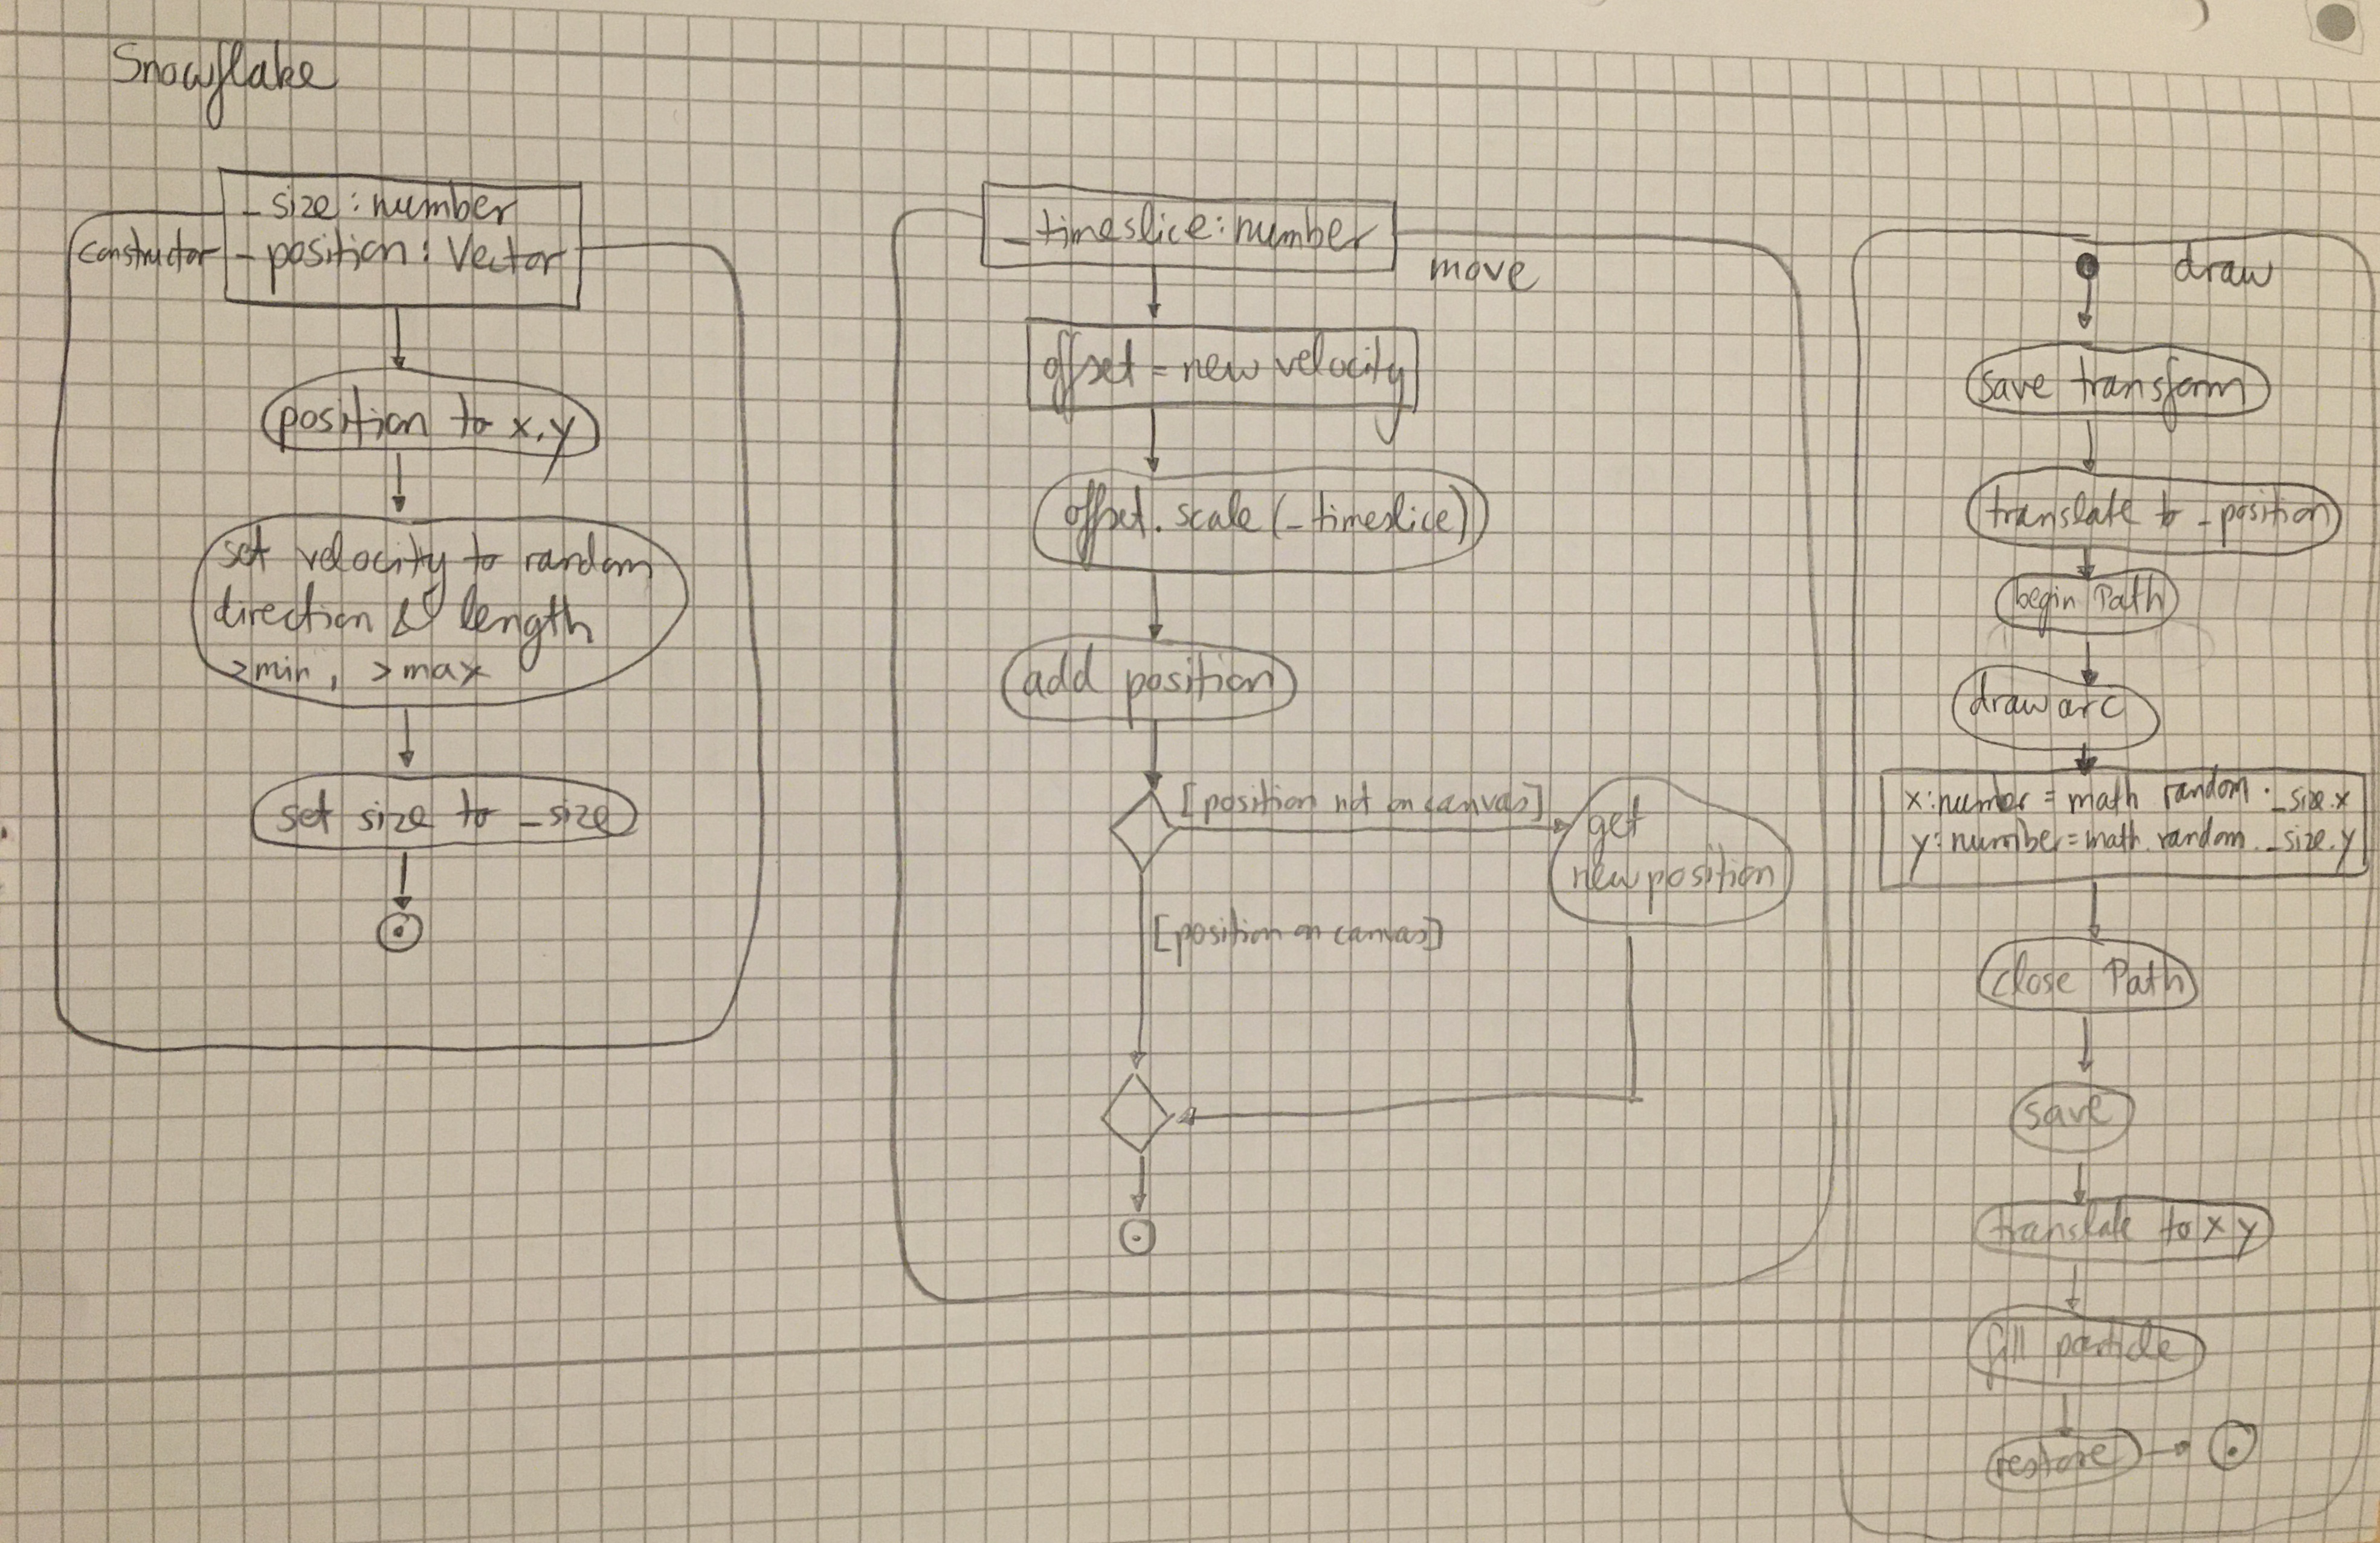 Snowflake
constructor
_size: number
_position: Vector
position to x,y
set velocity to random
direction & length
>min, >max
set size to _size
_timeslice: number
move
offset = new velocity
offset.scale(_timeslice)
add position
[position not on canvas]
get
new position
[position on canvas]
draw
save transform
translate to _position
begin Path
draw arc
x:number = math random · _size.x
y:number = math. random. _size.y
close Path
save
translate to x y
fill particle
restore